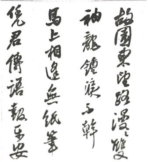 故園東望路漫漫雙
袖龍鍾淚不乾
馬上相逢無紙筆
凭君傳語報平安